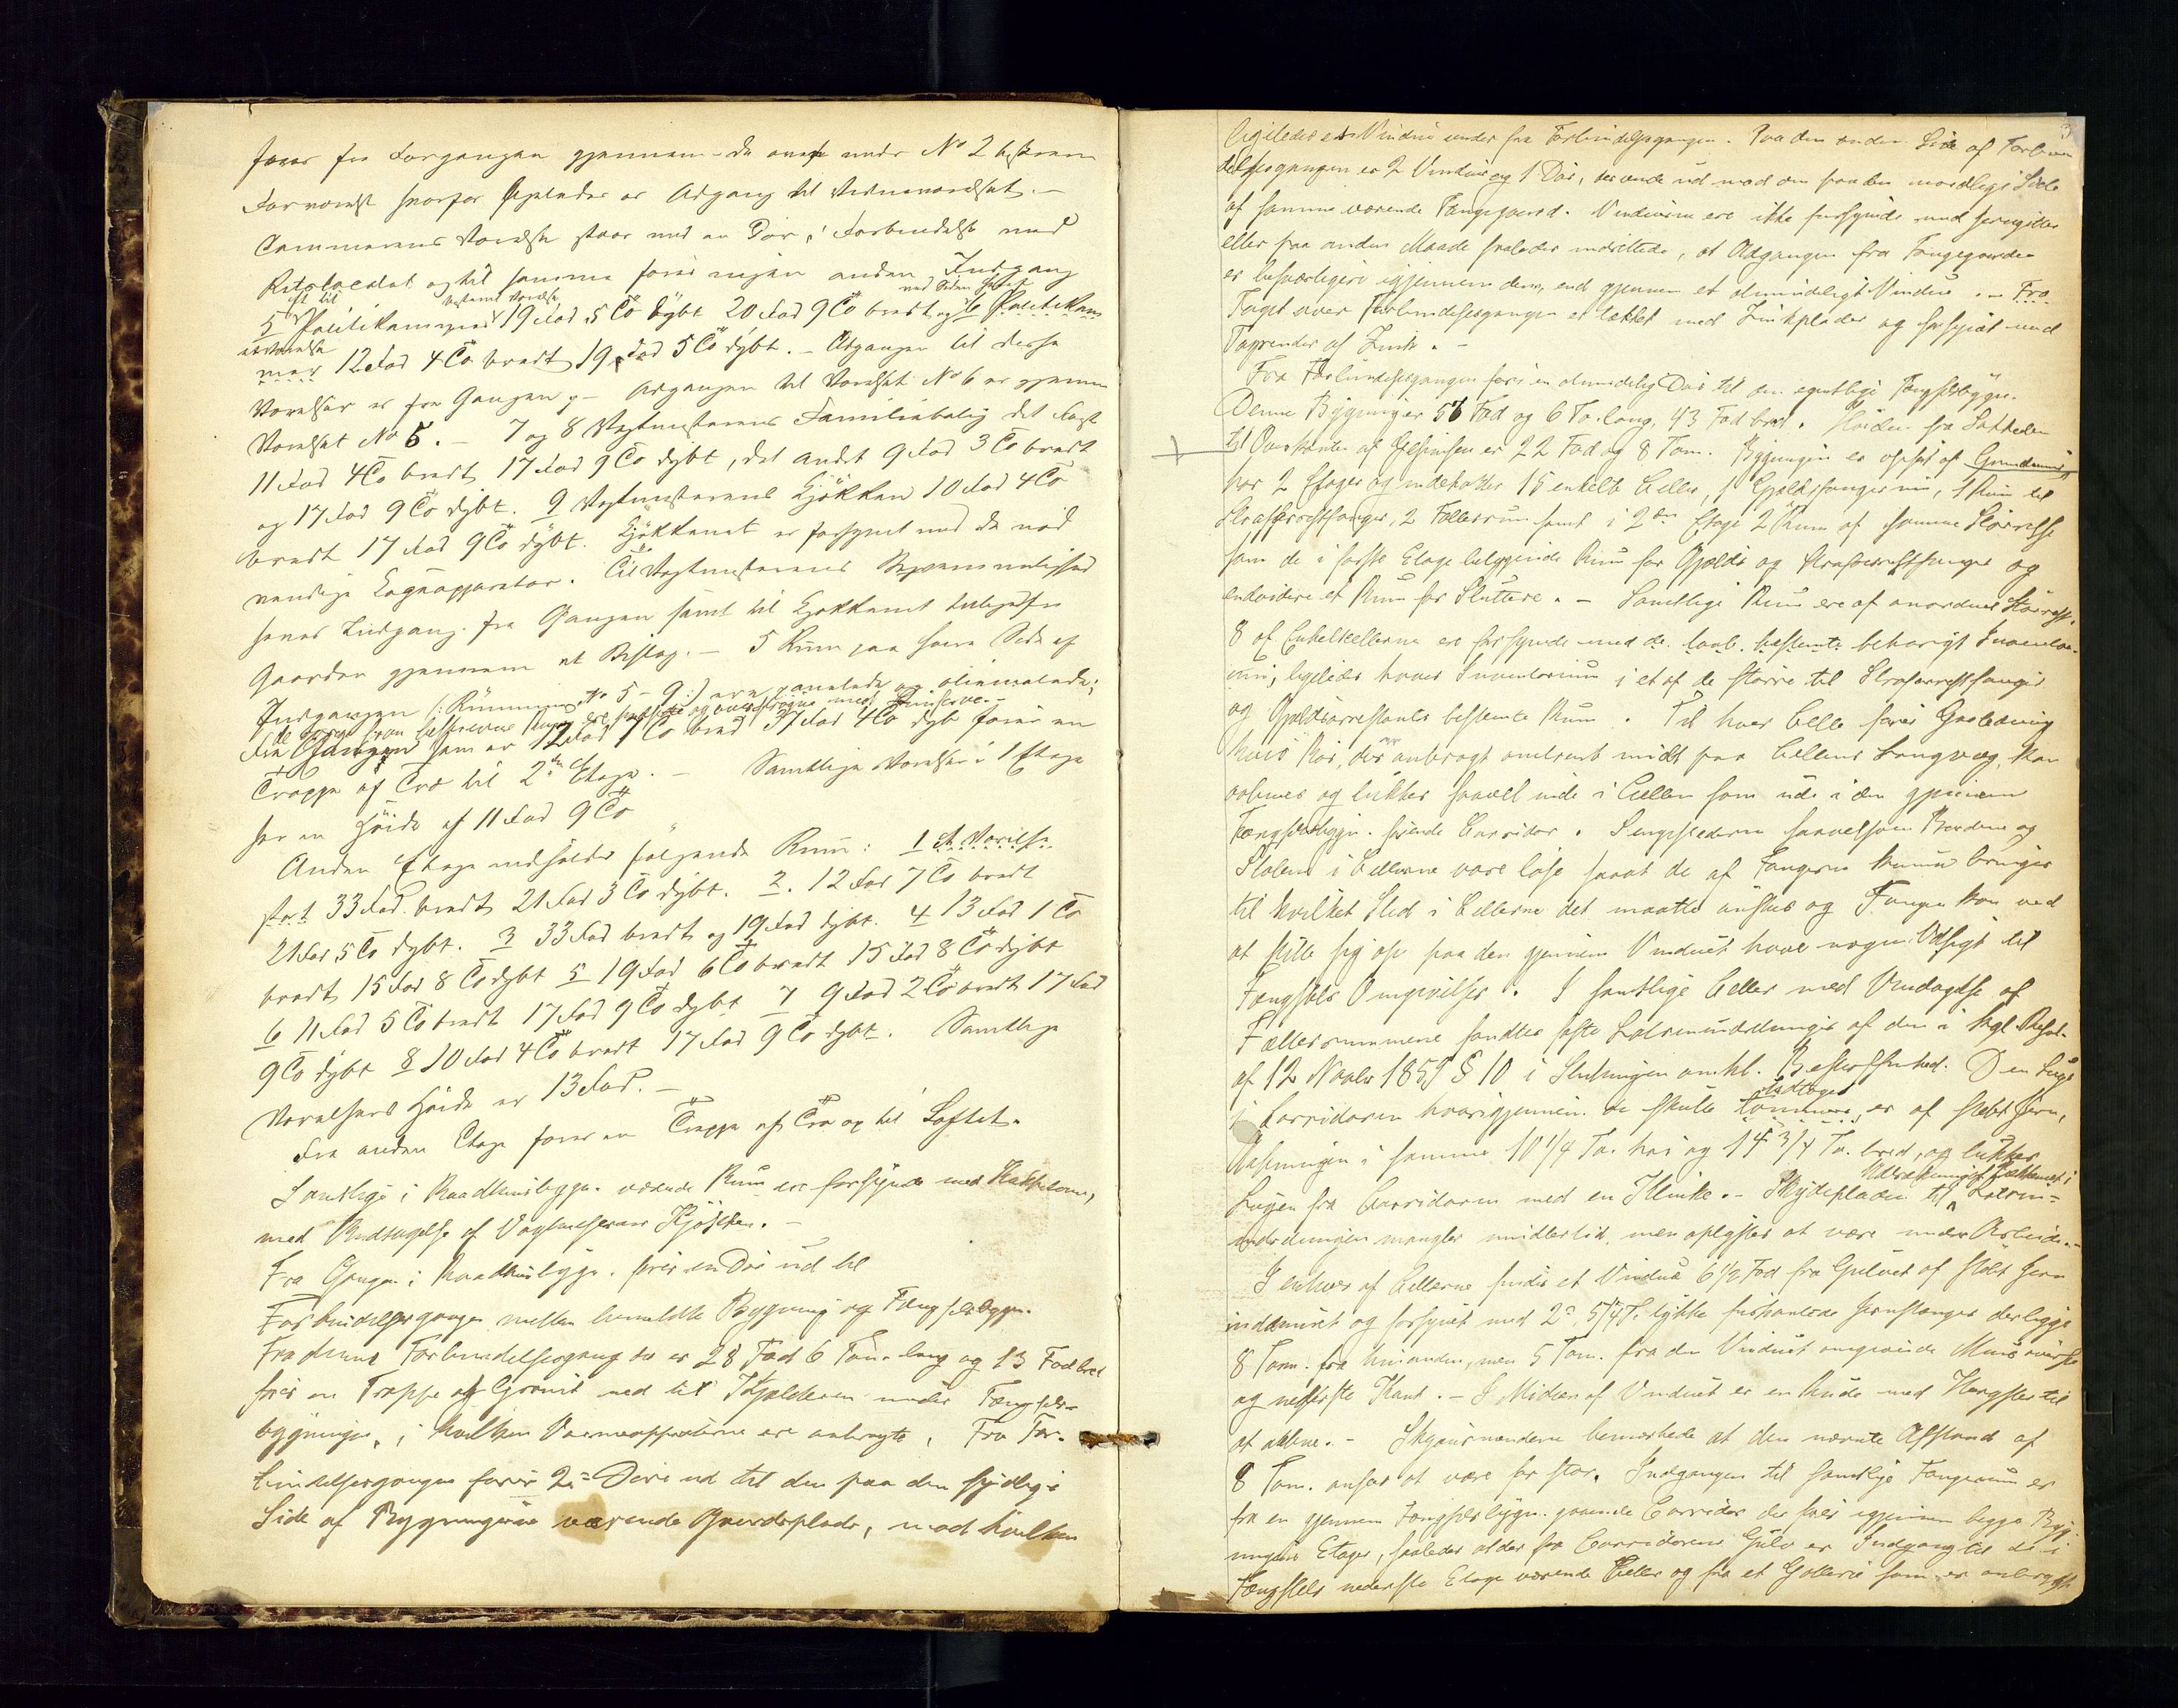 fører fra Forgangen gjennem de ovenfor under No 2 beskrevne
Forværelse hvorfor ligeledes er Adgang til Vidneværelset. –
Cammerens Værelse staar ved en Dør i Forbindelse med
Retslocalet og til samme fører ingen anden Indgang
5 et til Politikammeret bestemt Værelse 19 Fod 5 To dybt 20 Fod 9 To bredt og 6 Politikam-
mer 12 Fod 4 To bredt 19 Fod 5 To dybt. – Adgangen til disse
Værelser er fra Gangen, – Adgangen til Værelset No 6 er gjennem
Værelset No 5. – 7 og 8 Vagtmesterens Familiebolig det første
11 Fod 4 To bredt 17 Fod 9 To dybt, det andet 9 Fod 3 To bredt
og 17 Fod 9 To dybt. 9 Vagtmesterens Kjøkken 10 Fod 4 To
bredt 17 Fod 9 To dybt. Kjøkkenet er forsynet med de nød
vendige Kogeapparater. Til Vagtmesterens
haves Indgang fra Gangen samt til Kjøkkenet tillige fra
Gaarden gjennem et Bislag. – 5 Rum paa høire Side af
Indgangen (: Rummene No 5 – 9 :) ere panelede og oliemalede;
Fra Gangen som er 12 Fod 1 To bred 37 Fod 4 To dyb fører en
Trappe af Træ til 2den Etage. – Samtlige Værelser i 1 Etage
har en Høide af 11 Fod 9 To
Anden Etage indholder følgende Rum: 1 et Værelse
stort 33 Fod bredt 21 Fod 3 To dybt. 2. 12 Fod 7 To bredt
21 Fod 5 To dybt. 3 33 Fod bredt og 19 Fod dybt. 4 13 Fod 1 To
bredt 15 Fod 8 To dybt 5 19 Fod 6 To bredt 15 Fod 8 To dybt
6 11 Fod 5 To bredt 17 Fod 9 To dybt 7 9 Fod 2 To bredt 17 Fod
9 To dybt 8 10 Fod 4 To bredt 17 Fod 9 To dybt. Samtlige
Værelsers Høide er 13 Fod. –
Fra anden Etage fører en Trappe af Træ op til Loftet.
Samtlige i Raadhusbygn. værende Rum ere forsynede med Kakkelovne,
med Undtagelse af Vagtmesterens Kjøkken. –
Fra Gangen i Raadhusbygn. fører en Dør ud til
Forbindelsesgangen mellem bemeldte Bygning og Fængselsbygn.
Fra denne Forbindelsesgang der er 28 Fod 6 Tom. lang og 13 Fod bred
fører en Trappe af Granit ned til Kjælderen under Fængsels-
bygningen, i hvilken Varmeapparaterne ere anbragte. Fra For-
bindelsesgangen fører 2de Døre ud til den paa den sydlige
Side af Bygningerne værende Gaardsplads, mod hvilken
ligeledes et Vindue vender fra Forbindelsesgangen. Paa den anden Side af Forbin
delsesgangen er 2 Vinduer og 1 Dør, der vende ud mod den paa den nordlige Side
af samme værende Fangegaard. Vinduerne ere ikke forsynede med Jerngitter
eller paa anden Maade saaledes indrettede, at Adgangen fra Fangegaarden
er besværligere igjennem dem, end gjennem et almindeligt Vindue. –
Taget over Forbindelsesgangen er tækket med Zinkplader og forsynet med
Tagrender af Zink. –
Fra Forbindelsesgangen fører en almindelig Dør til den egentlige Fængselsbygn.
Denne Bygning er 56 Fod og 6 To. lang, 43 Fod bred. Høiden fra Sokkelen
til Overkanten af Gesimsen er 22 Fod og 8 Tom. Bygningen er opført af Grundmur,
har 2 Etager og indeholder 15 enkelte Celler, 1 Gjældsfangerum, 1 Rum til
Strafarrestfanger, 2 Fællesrum samt i 2den Etage 2 Rum af samme Størrelse
som de i første Etage beliggende Rum for Gjælds og Strafarrestfanger og
endvidere et Rum for Sluttere. – Samtlige Rum ere af anordnet Størrelse,
8 af Enkeltcellerne ere forsynede med de bestemte behørigt Inventa-
rium, ligeledes haves Inventarium i et af de større til Strafarrestfanger
og Gjældsarrestants bestemte Rum. Til hver Celle fører Gasledning
hvis Rør, der er anbragt omtrent midt paa Cellens Langvæg, kan
aabnes og lukkes saavel inde i Cellen som ude i den gjennem
Fængselsbygn. førende Corridor. Sengestederne saavelsom Bordene og
Stolene i Cellerne vare løse saaat de af Fangerne kunne bringes
til hvilket Sted i Cellerne det maatte ønskes og Fangen kan ved
at stille sig op paa den gjennem Vinduet have nogen Udsigt til
Fængslets Omgivelser. I samtlige Celler med Undtagelse af
Fællesrummene fandtes faste Latrinindretninger af den i kgl. Resol.
af 12 Novbr 1859 § 10 i Slutningen omhl. Beskaffenhed. Den Luge
i Corridoren hvorigjennem de skulle udtages, er af støbt Jern,
Aabningen i samme 10 1/4 To. høi og 14 3/4 To. bred, og lukkes
Lugen fra Corridoren med en Klinke. – Skydepladen til Latrin-
indretningen mangler imidlertid, men oplystes at være under Arbeide. –
I enhver af Cellerne findes et Vindue 6 1/2 Fod fra Gulvet af støbt Jern
indmuret og forsynet med 2de 5/4 T. tykke firkantede Jernstænger der ligge
8 Tom. fra hinanden, men 5 Tom. fra den Vinduet omgivende Muurs øverste
og nederste Kant. – I Midten af Vinduet er en Rude med Hængsler til
at aabne. – Skjønsmændene bemærkede at den nævnte Afstand af
8 Tom. ansaaes at være for stor. Indgangen til samtlige Fangerum er
fra en gjennem Fængselsbygn. gaaende Corridor der fører igjennem begge Byg-
ningens Etager, saaledes at der fra Corridorens Gulv er Indgang til de i
Fængslets nederste Etage værende Celler og fra et Gallerie som er anbragt